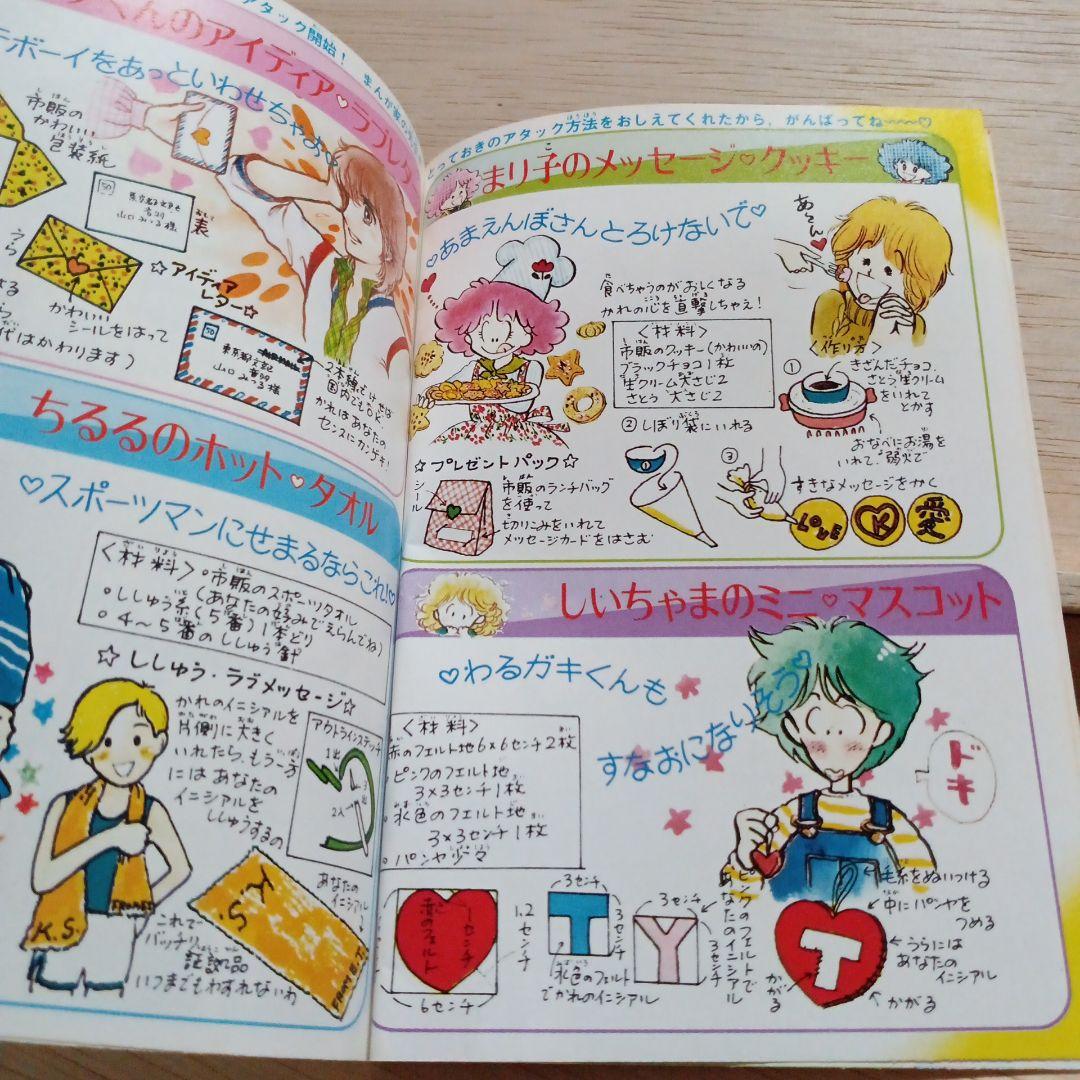 アタック開始！ まんが家の
くんのアイディア♡ラブレ
テボーイをあっといわせちゃお♡
市販の
かわいい
包装紙
50
東京都文京区
音羽
山口みつる様
表
かわいい
シールをはって
代はかわります）
☆アイディア
レター☆
50
東京都文京区
音羽
山口みつる様
2本線でけせば
国内でもOK
かれはあなたの
センスにカンゲキ！
ちるるのホット♡タオル
♡スポーツマンにせまるならこれ！♡
＜材料＞・市販のスポーツタオル
・ししゅう糸（5番）1本どり
（あなたの好みでえらんでね）
・4〜5番のししゅう針
☆ししゅう・ラブメッセージ☆
かれのイニシアルを
片側に大きく
いれたら、もう一方
にはあなたの
イニシアルを
ししゅうするの
アウトラインステッチ
1出
2入
K.S.
あなたの
イニシアル
これで
バッチリ
いつまでもわすれないわ
とっておきのアタック方法をおしえてくれたから、がんばってね〜〜♡
まり子のメッセージ♡クッキー
♡あまえんぼさんとろけないで♡
食べちゃうのがおしくなる
かれの心を直撃しちゃえ！
あ〜ん
＜材料＞
市販のクッキー（かわいいの）
ブラックチョコ1枚
生クリーム大さじ2
さとう 大さじ2
＜作り方＞
① きざんだチョコ、
さとう生クリーム
をいれて
とかす
おなべにお湯を
いれて、弱火で
② しぼり袋にいれる
③
すきなメッセージをかく
LOVE
K
愛
☆プレゼントパック☆
シール
市販のランチバッグ
を使って
切りこみをいれて
メッセージカードをはさむ
しいちゃまのミニ♡マスコット
♡わるガキくんも
すなおになりそう♡
＜材料＞
赤のフェルト地6×6センチ2枚
・ピンクのフェルト地
3×3センチ1枚
・水色のフェルト地
3×3センチ1枚
・パンヤ少々
ドキ
赤のフェルト
6センチ
3センチ
T
3センチ
水色のフェルト
でかれのイニシアル
3センチ
Y
3センチ
ピンクのフェルトで
あなたのイニシアル
毛糸をぬいつける
中にパンヤを
つめる
T
うらには
あなたの
イニシアル
かがる
かがる